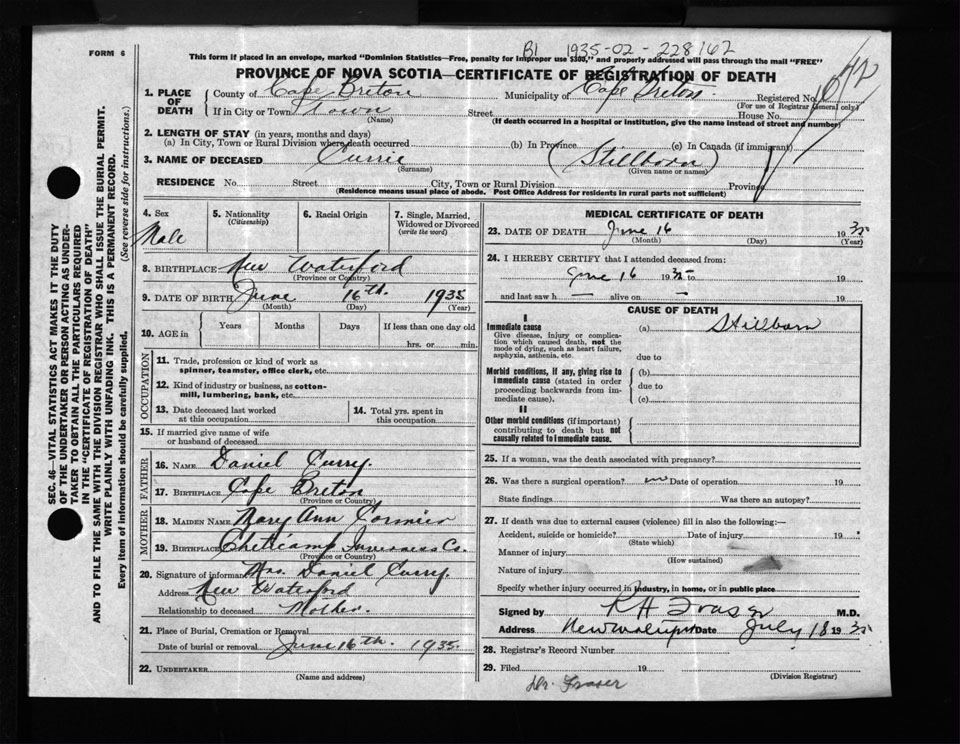 FORM 6
B1 1935-02-228162
This form if placed in an envelope, marked "Dominion Statistics—Free, penalty for improper use $300," and properly addressed will pass through the mail "FREE"
PROVINCE OF NOVA SCOTIA—CERTIFICATE OF REGISTRATION OF DEATH
1. PLACE OF DEATH
County of Cape Breton Municipality of Cape Breton Registered No.
(For use of Registrar General only)
If in City or Town Town Street House No.
(Name) (If death occurred in a hospital or institution, give the name instead of street and number)
2. LENGTH OF STAY (in years, months and days)
(a) In City, Town or Rural Division where death occurred (b) In Province (c) In Canada (if immigrant)
3. NAME OF DECEASED Currie (Stillborn)
(Surname) (Given name or names)
RESIDENCE No. Street City, Town or Rural Division Province
(Residence means usual place of abode. Post Office Address for residents in rural parts not sufficient)
4. Sex Male
5. Nationality (Citizenship)
6. Racial Origin
7. Single, Married, Widowed or Divorced (write the word)
8. BIRTHPLACE New Waterford
(Province or Country)
9. DATE OF BIRTH June 16th. 1935
(Month) (Day) (Year)
10. AGE in Years Months Days If less than one day old
hrs. or min.
OCCUPATION
11. Trade, profession or kind of work as spinner, teamster, office clerk, etc.
12. Kind of industry or business, as cotton-mill, lumbering, bank, etc.
13. Date deceased last worked at this occupation
14. Total yrs. spent in this occupation
15. If married give name of wife or husband of deceased
FATHER
16. NAME Daniel Curry.
17. BIRTHPLACE Cape Breton
(Province or Country)
MOTHER
18. MAIDEN NAME Mary Ann Cormier
19. BIRTHPLACE Cheticamp Inverness Co.
(Province or Country)
20. Signature of informant Mrs. Daniel Curry.
Address New Waterford
Relationship to deceased Mother.
21. Place of Burial, Cremation or Removal
Date of burial or removal June 16th. 1935.
22. UNDERTAKER
(Name and address)
MEDICAL CERTIFICATE OF DEATH
23. DATE OF DEATH June 16 1935
(Month) (Day) (Year)
24. I HEREBY CERTIFY that I attended deceased from:
June 16 1935 to 19
and last saw h — alive on — 19
CAUSE OF DEATH
I
Immediate cause
Give disease, injury or complication which caused death, not the mode of dying, such as heart failure, asphyxia, asthenia, etc.
(a) Stillborn
due to
Morbid conditions, if any, giving rise to immediate cause (stated in order proceeding backwards from immediate cause).
(b)
due to
(c)
II
Other morbid conditions (if important) contributing to death but not causally related to immediate cause.
25. If a woman, was the death associated with pregnancy?
26. Was there a surgical operation? no Date of operation 19
State findings Was there an autopsy?
27. If death was due to external causes (violence) fill in also the following:—
Accident, suicide or homicide? Date of injury 19
(State which)
Manner of injury
(How sustained)
Nature of injury
Specify whether injury occurred in industry, in home, or in public place
Signed by R H Fraser M.D.
Address Date July 18 1935
28. Registrar's Record Number
29. Filed 19
(Division Registrar)
Dr. Fraser
SEC. 46—VITAL STATISTICS ACT MAKES IT THE DUTY
OF THE UNDERTAKER OR PERSON ACTING AS UNDER-
TAKER TO OBTAIN ALL THE PARTICULARS REQUIRED
IN THE "CERTIFICATE OF REGISTRATION OF DEATH"
AND TO FILE THE SAME WITH THE DIVISION REGISTRAR WHO SHALL ISSUE THE BURIAL PERMIT.
WRITE PLAINLY WITH UNFADING INK. THIS IS A PERMANENT RECORD.
Every item of information should be carefully supplied. (See reverse side for instructions.)